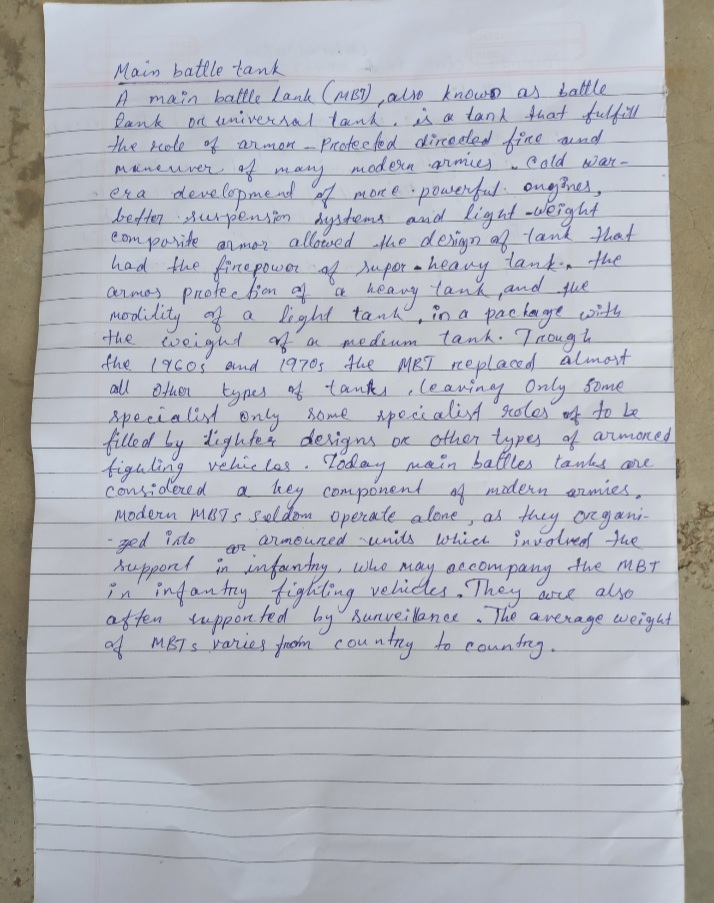 Main battle tank
A main battle tank (MBT), also known as battle
tank or universal tank, is a tank that fulfill
the role of armor-protected directed fire and
maneuver of many modern armies. Cold war-
era development of more powerful engines,
better suspension systems and light-weight
composite armor allowed the design of tank that
had the firepower of super-heavy tank, the
armor protection of a heavy tank, and the
modility of a light tank, in a package with
the weight of a medium tank. Trough
the 1960s and 1970s the MBT replaced almost
all other types of tanks, leaving only some
specialist only some specialist roles of to be
filled by lighter designs or other types of armored
fighting vehicles. Today main battles tanks are
considered a key component of modern armies.
Modern MBTs seldom operate alone, as they organi-
-zed into or armoured units which involved the
support in infantry, who may accompany the MBT
in infantry fighting vehicles. They are also
often supported by surveillance. The average weight
of MBTs varies from country to country.